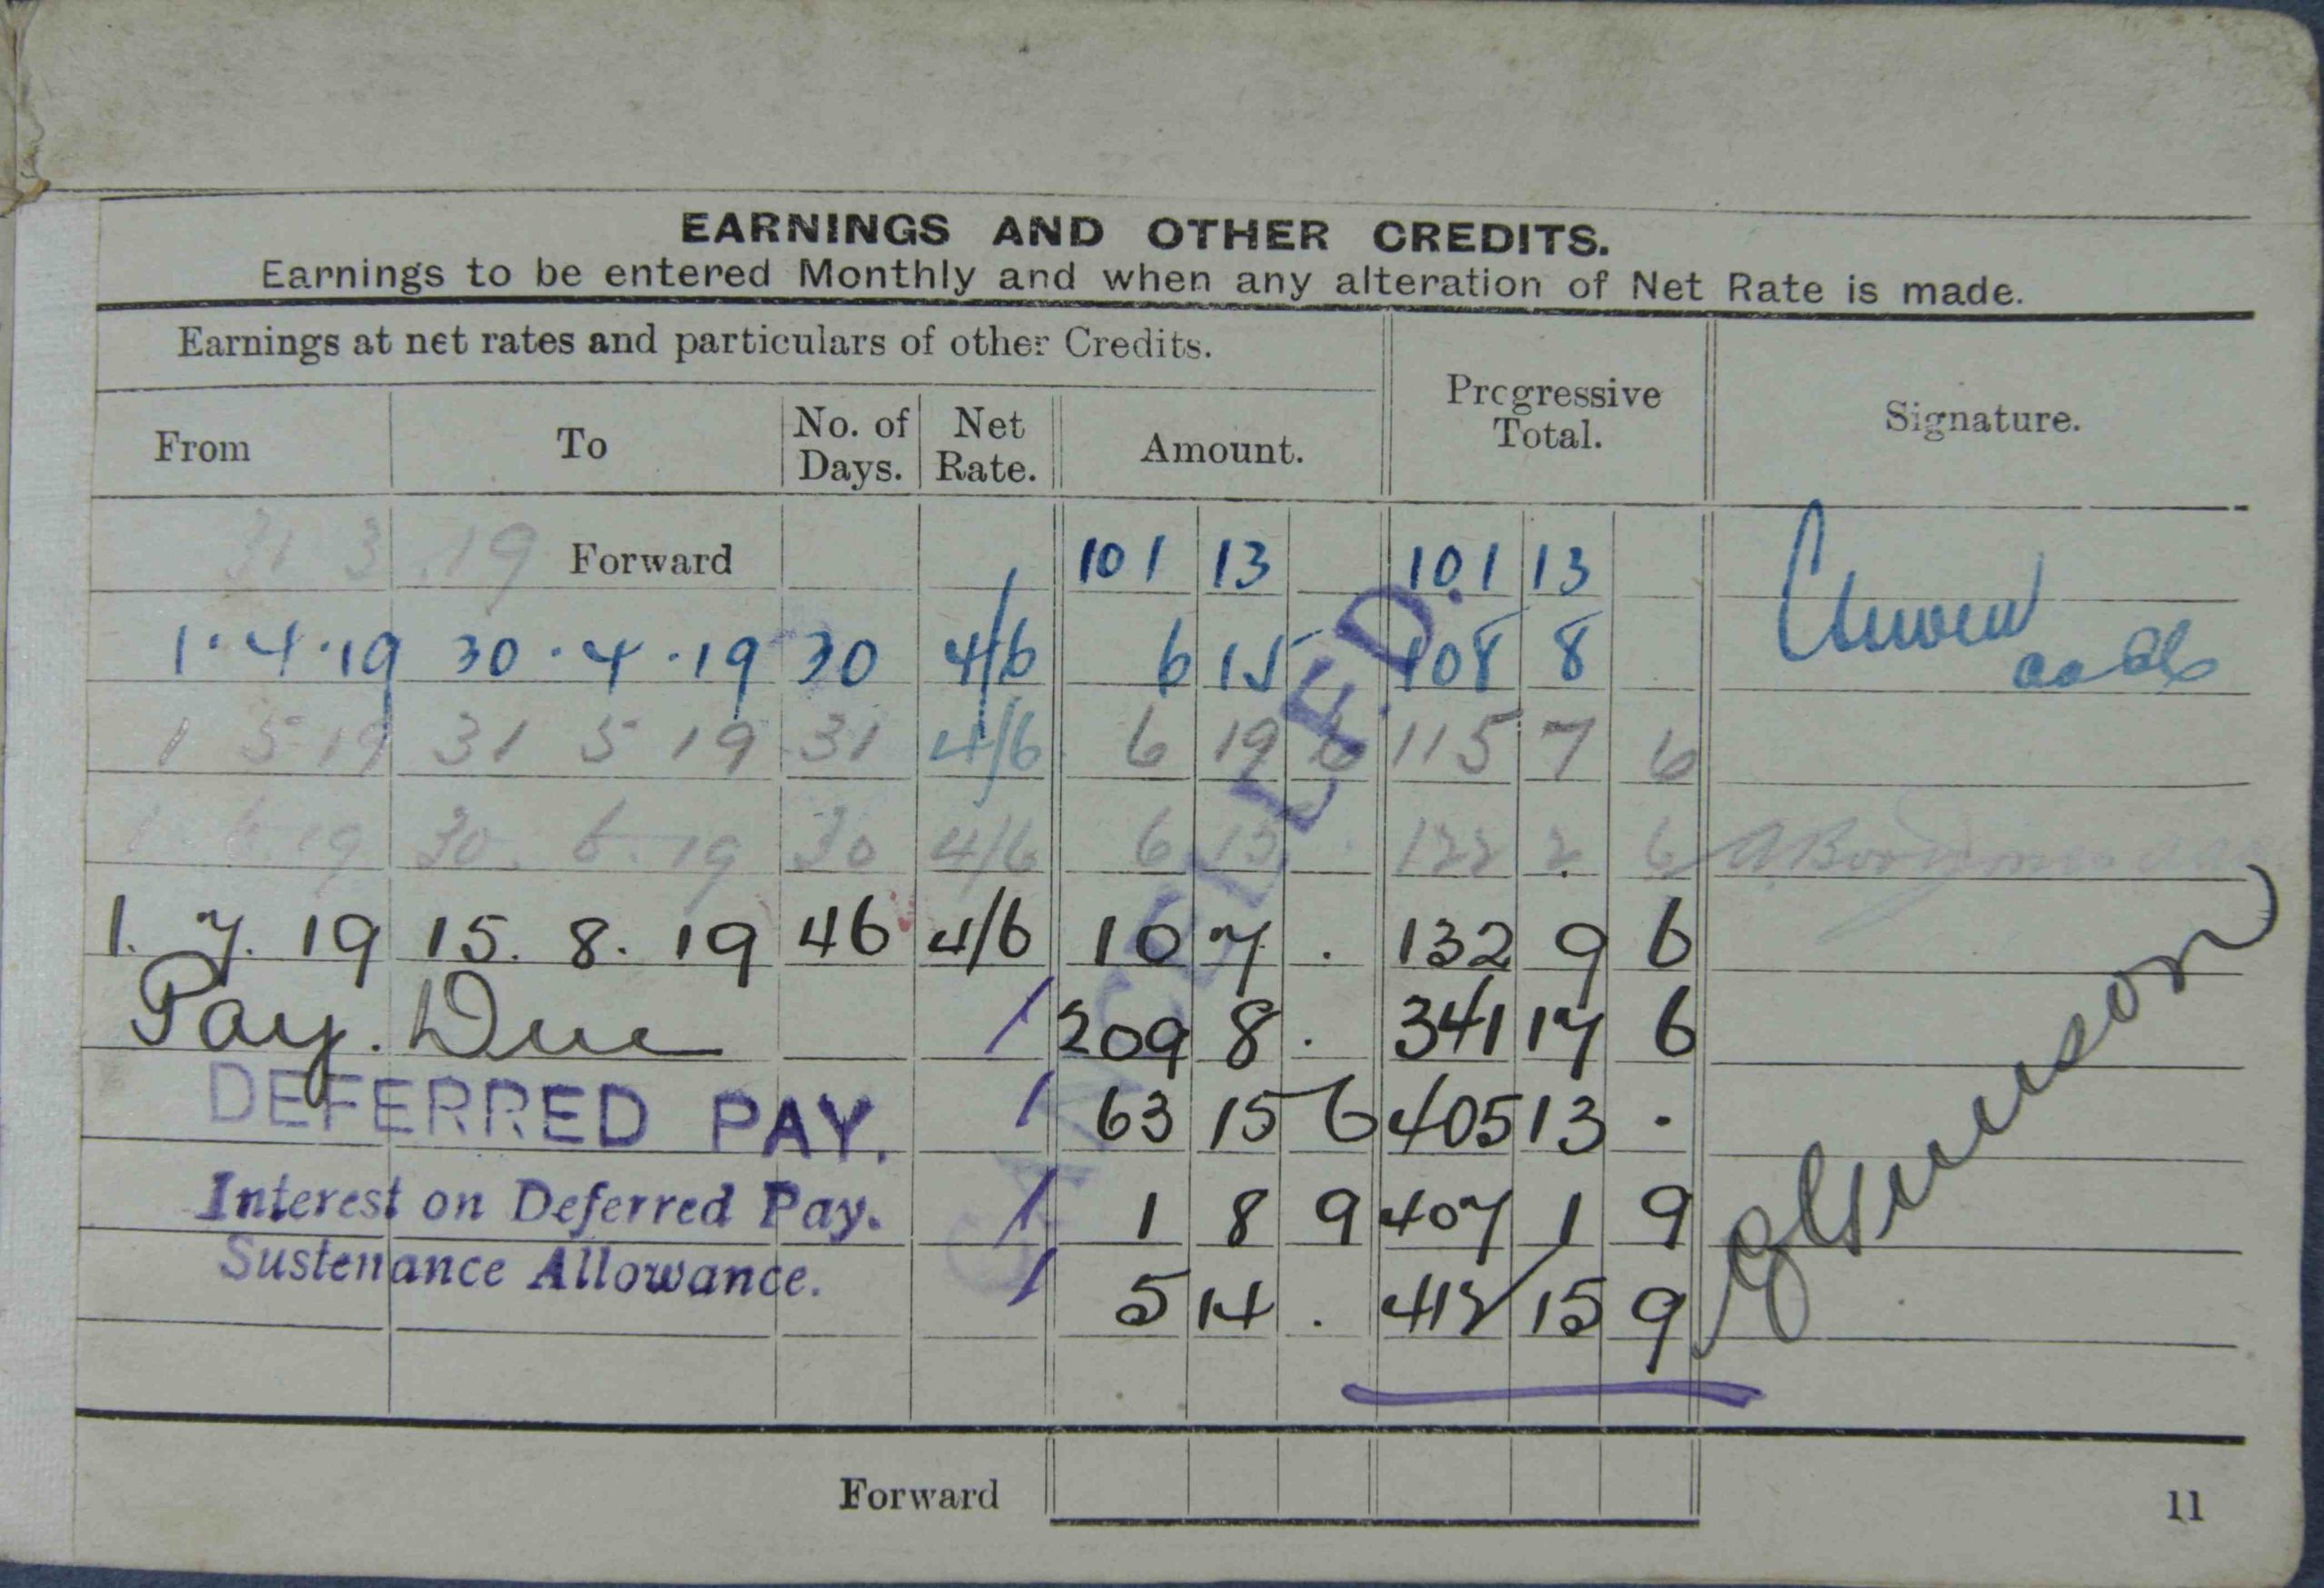 EARNINGS AND OTHER CREDITS.
Earnings to be entered Monthly and when any alteration of Net Rate is made.
Earnings at net rates and particulars of other Credits.
Progressive Total.
Signature.
From To No. of Days. Net Rate. Amount.
31 3 . 19 Forward 101 13 101 13
1 . 4 . 19 30 . 4 . 19 30 4/6 6 15 108 8
1 5 19 31 5 19 31 4/6 6 19 6 115 7 6
1 6 19 30 . 6 . 19 30 4/6 6 15 . 122 2 6
1 . 7 . 19 15 . 8 . 19 46 4/6 10 7 . 132 9 6
Pay . Due / 209 8 . 341 17 6
DEFERRED PAY. / 63 15 6 405 13 .
Interest on Deferred Pay. / 1 8 9 407 1 9
Sustenance Allowance. / 5 14 . 412 15 9
CANCELLED.
Forward
11